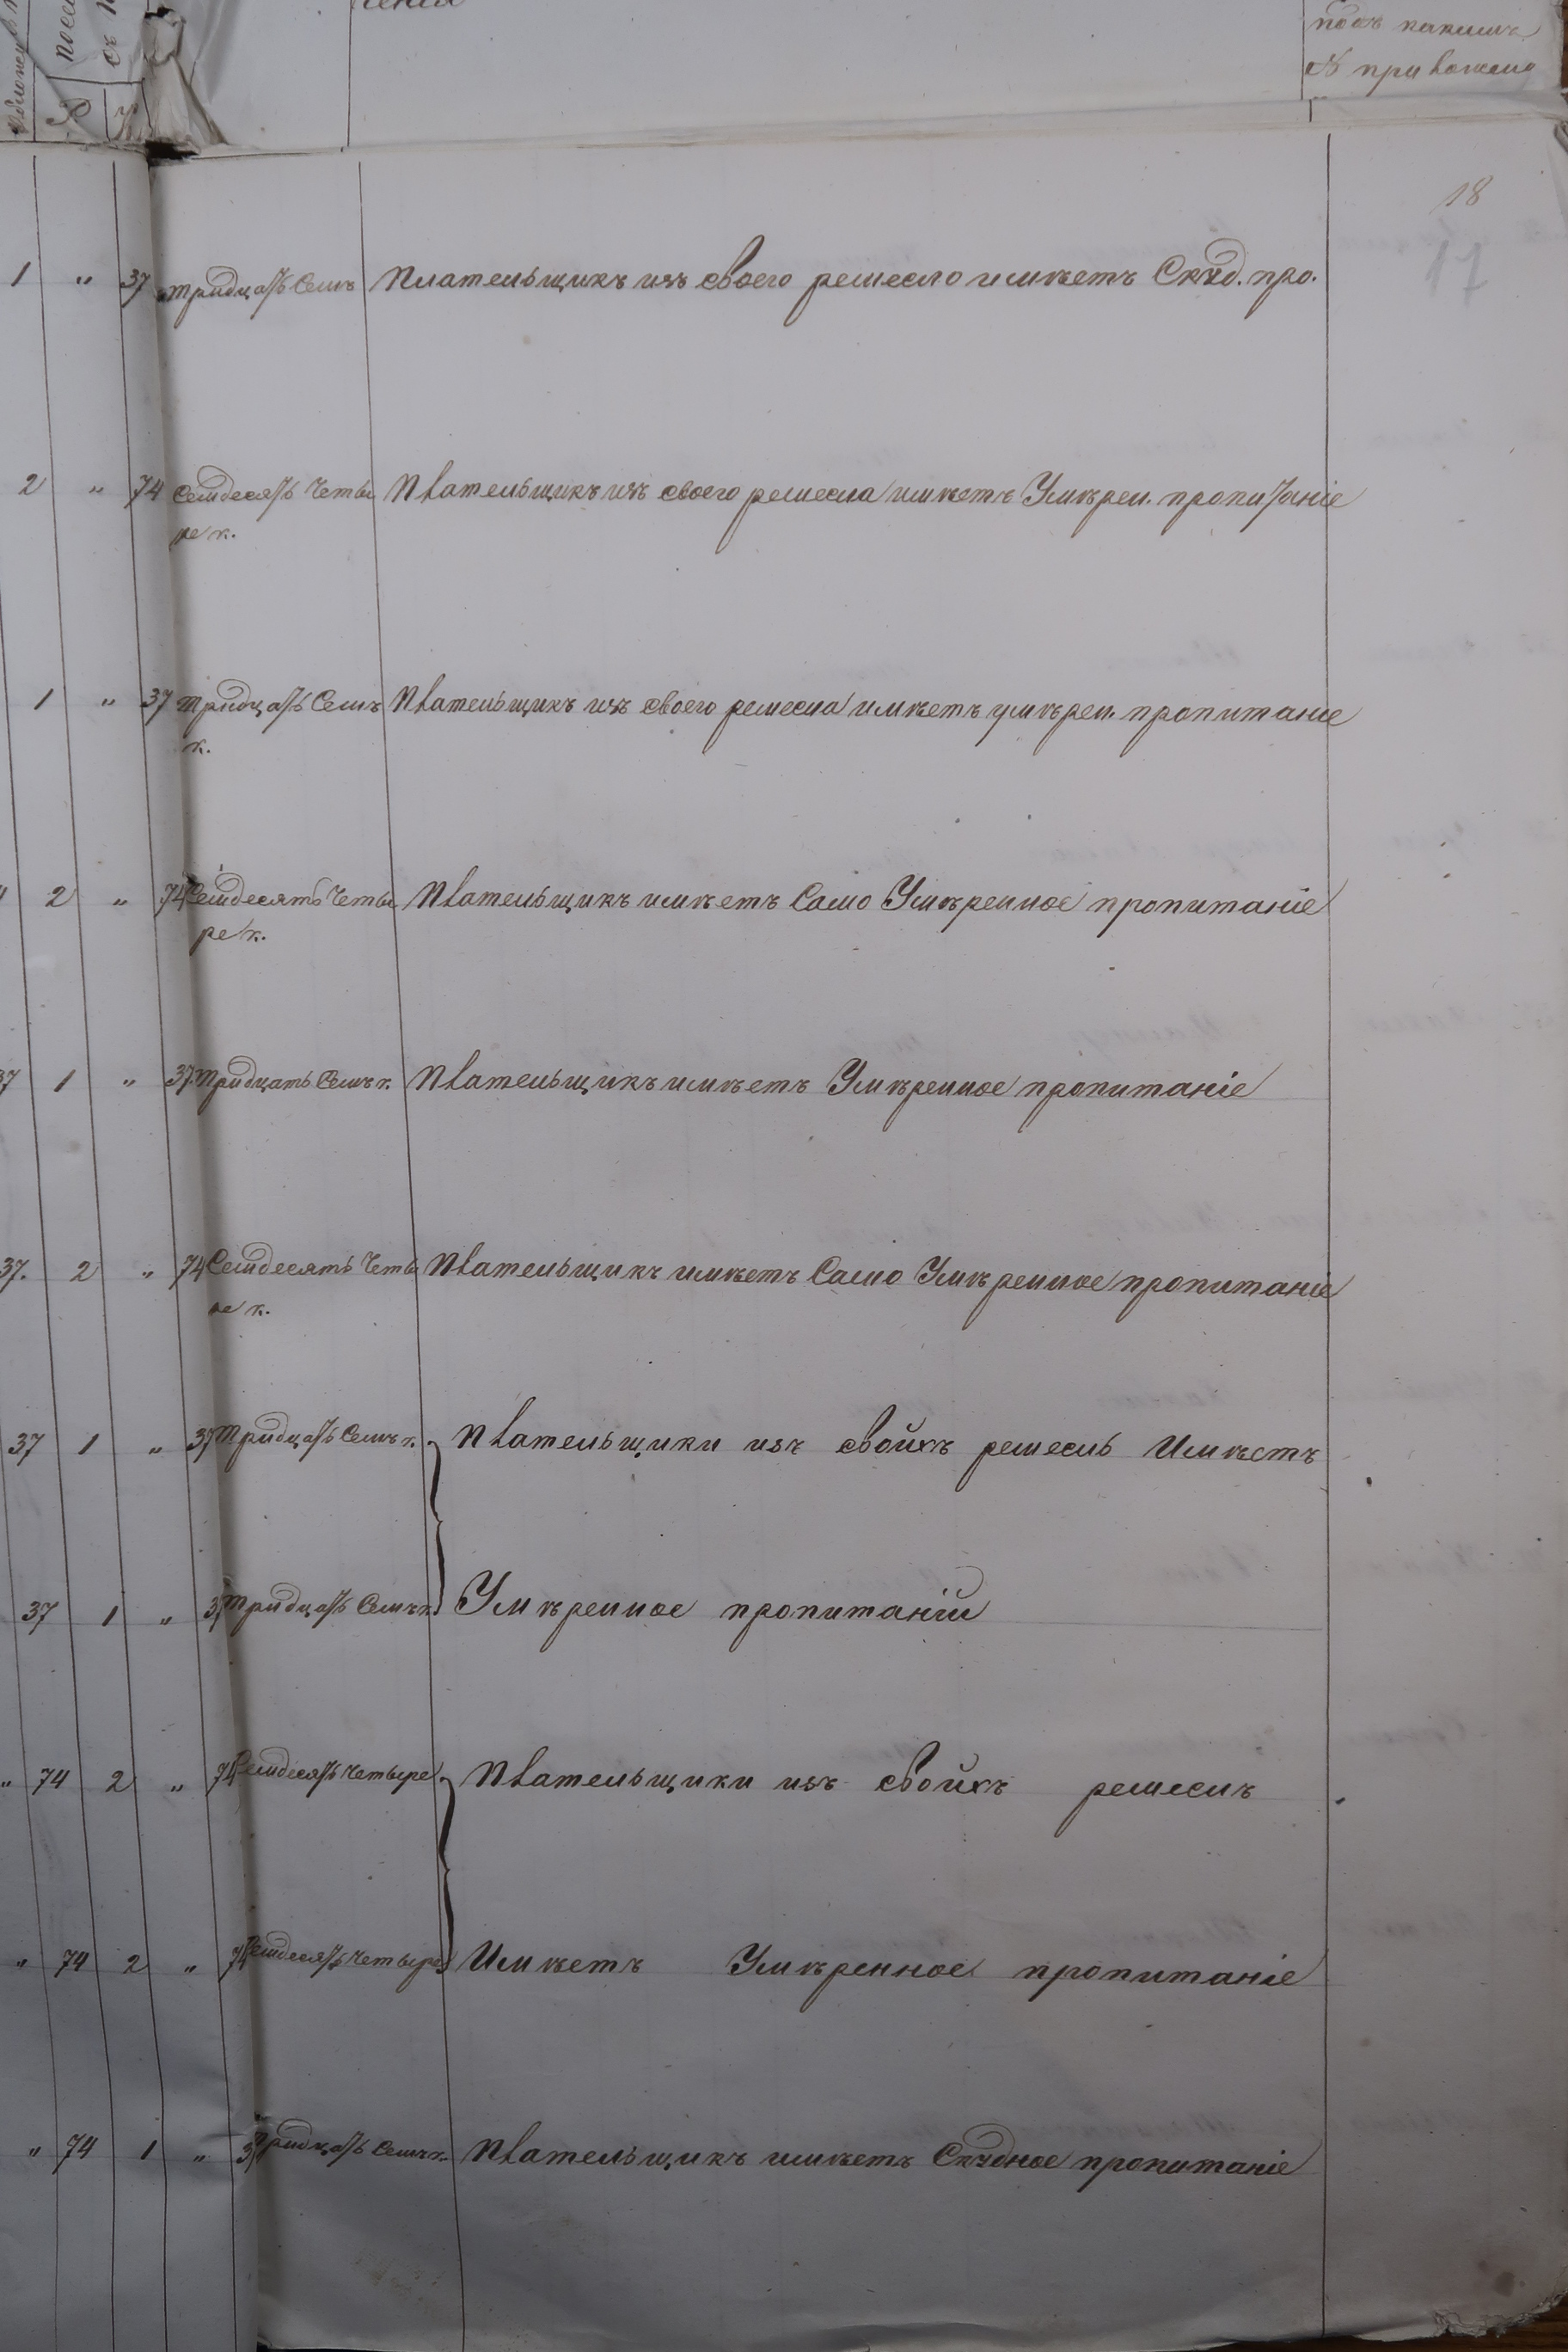 подъ какимъ
№ приложено
18
17
1 " 37 тридцать Семъ Плательщикъ изъ своего ремесло имѣетъ Скуд. про.
2 " 74 Семдесять Четы Плательщикъ изъ своего ремесла имѣетъ Умѣрен. пропитаніе
ре к.
1 " 37 тридцать Семъ Плательщикъ изъ своего ремесла имѣетъ умѣрен. пропитание
к.
2 " 74 Семдесять Четы Плательщикъ имѣетъ Само Умѣренное пропитаніе
ре к.
37 1 " 37 тридцать Семъ к. Плательщикъ имѣетъ Умѣренное пропитаніе
37. 2 " 74 Семдесять Четы Плательщикъ имѣетъ Само Умѣренное пропитаніе
ре к.
37 1 " 37 тридцать Семъ к. Плательщики изъ свойхъ ремеслъ Имѣетъ
37 1 " 37 тридцать Семъ к. Умѣренное пропитаніи
" 74 2 " 74 Семдесять четыре Плательщики изъ свойхъ ремеслъ
" 74 2 " 74 Семдесять четыре Имѣетъ Умѣренное пропитаніе
" 74 1 " 37 тридцать Семъ к. Плательщикъ имѣетъ Скудное пропитаніе